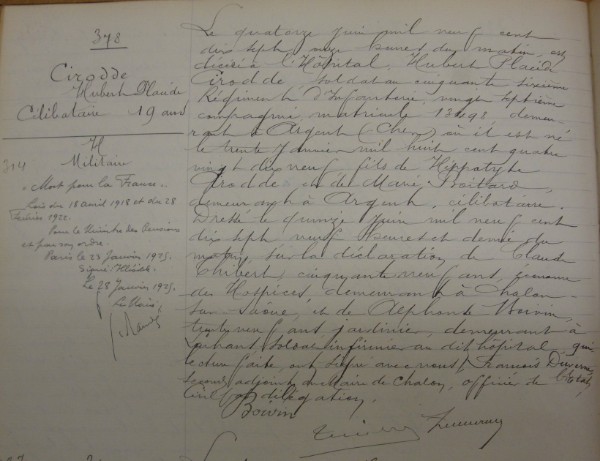 378
Cirodde
Hubert Placide
Célibataire 19 ans
Militaire
"Mort pour la France"
Lois du 18 avril 1918 et du 28
Février 1922.
Pour le Ministre des Pensions
et par son ordre.
Paris le 23 Janvier 1925.
Signé:
Le 28 Janvier 1925.
Le Maire,
Le quatorze juin mil neuf cent
dix sept, onze heures du matin, est
décédé à l'Hôpital, Hubert Placide
Cirodde, soldat au cinquante sixième
Régiment d'Infanterie, vingt septième
compagnie, matricule 13498, demeu-
rant à Argent (Cher) où il est né
le trente janvier mil huit cent quatre
vingt dix neuf, fils de Hippolyte
Cirodde et de Marie
demeurant à Argent, célibataire.
Dressé le quinze juin mil neuf cent
dix sept neuf heures et demie du
matin, sur la déclaration de Claude
cinquante neuf ans, économe
des Hospices demeurant à Chalon-
sur-Saône, et de Alphonse
trente neuf ans jardinier, demeurant à
soldat infirmier au dit hôpital, qui
lecture faite, ont signé avec nous, Francois
adjoint du Maire de Chalon, officier de l'Etat
Civil par délégation.